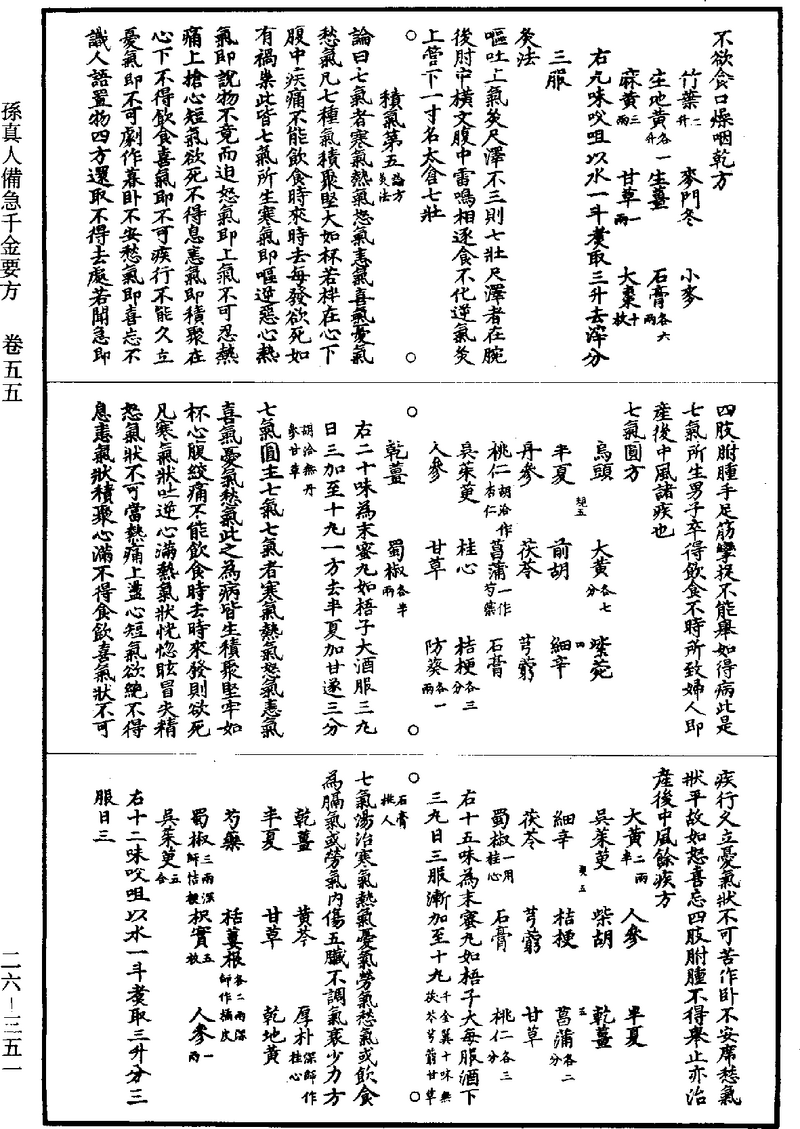 不欲食口燥咽乾方
竹葉二升 麥門冬 小麥
生地黃各一升 生薑 石膏各六兩
麻黃三兩 甘草一兩 大棗十枚
右九味㕮咀以水一斗煑取三升去滓分
三服
灸法
嘔吐上氣灸尺澤不三則七壯尺澤者在腕
後肘中橫文腹中雷鳴相逐食不化逆氣灸
上管下一寸名太倉七壯
積氣第五論方灸法
論曰七氣者寒氣熱氣怒氣恚氣喜氣憂氣
愁氣凡七種氣積聚堅大如杯若柈在心下
腹中疾痛不能飲食時來時去每發欲死如
有禍祟此皆七氣所生寒氣即嘔逆惡心熱
氣即說物不竟而迫怒氣即上氣不可忍熱
痛上搶心短氣欲死不得息恚氣即積聚在
心下不得飲食喜氣即不可疾行不能久立
憂氣即不可劇作暮卧不安愁氣即喜忘不
識人語置物四方還取不得去處若聞急即
四肢胕腫手足筋攣捉不能舉如得病此是
七氣所生男子卒得飲食不時所致婦人即
產後中風諸疾也
七氣圓方
烏頭 大黃各七分 紫菀
半夏 前胡 細辛
丹參 茯苓 芎藭
桃仁胡洽作杏仁 菖蒲一作芍藥 石膏
吳茱萸 桂心 桔梗各三分
人參 甘草 防葵各一兩
乾薑 蜀椒各半兩
右二十味為末蜜丸如梧子大酒服三丸
日三加至十丸一方去半夏加甘遂三分
胡洽無丹參甘草
七氣圓主七氣七氣者寒氣熱氣怒氣恚氣
喜氣憂氣愁氣此之為病皆生積聚堅牢如
杯心腹絞痛不能飲食時去時來發則欲死
凡寒氣狀吐逆心滿熱氣狀恍惚眩冒失精
怒氣狀不可當熱痛上盪心短氣欲絕不得
息恚氣狀積聚心滿不得食飲喜氣狀不可
疾行久立憂氣狀不可苦作卧不安席愁氣
狀平故如怒喜忘四肢胕腫不得舉止亦治
產後中風餘疾方
大黃二兩半 人參 半夏
吳茱萸 柴胡 乾薑
細辛 桔梗 菖蒲各二分
茯苓 芎藭 甘草
蜀椒一用桂心 石膏 桃仁各三分
右十五味為末蜜丸如梧子大每服酒下
三丸日三服漸加至十丸千金翼十味無茯苓芎藭甘草
石膏桃人
七氣湯治寒氣熱氣憂氣勞氣愁氣或飲食
為膈氣或勞氣內傷五臟不調氣衰少力方
乾薑 黃芩 厚朴深師作桂心
半夏 甘草 乾地黃
芍藥 栝蔞根各二兩深師作橘皮
蜀椒三兩深師桔梗 枳實五枚 人參一兩
吳茱萸五合
右十二味㕮咀以水一斗煑取三升分三
服日三
孫真人備急千金要方 卷五五
二六-三五一